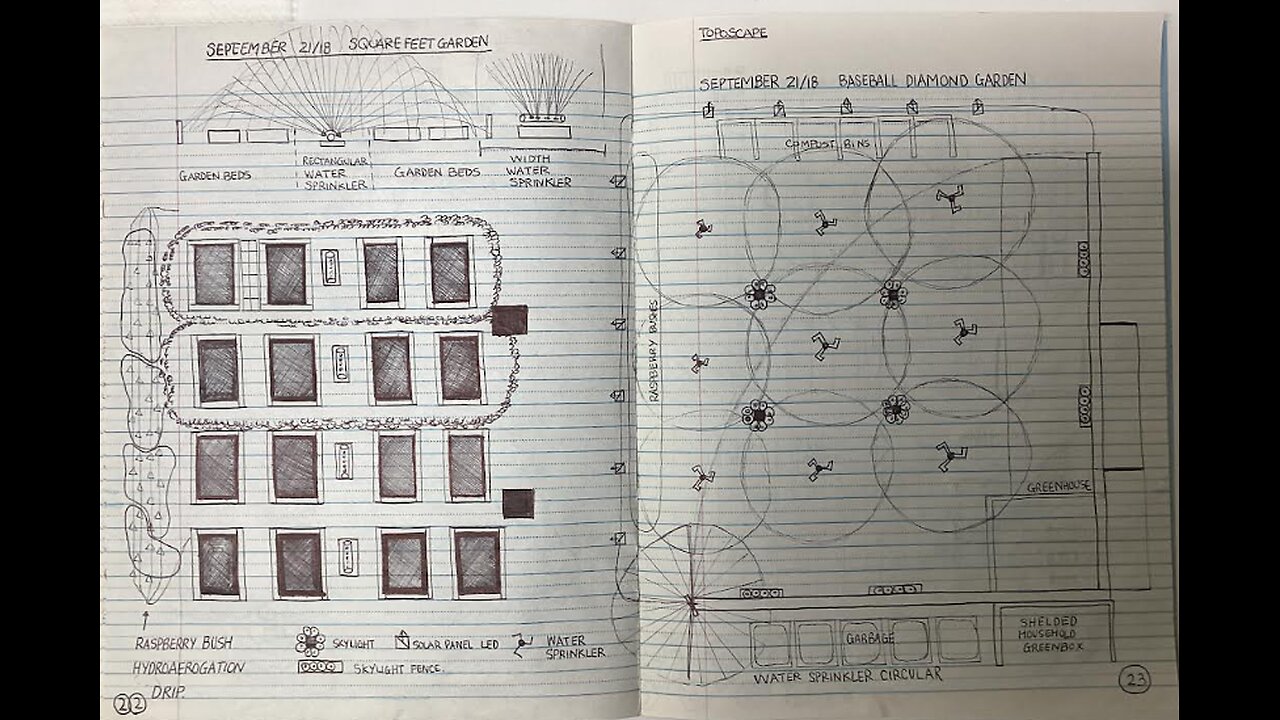 SEPTEMBER 21/18 SQUARE FEET GARDEN
GARDEN BEDS
RECTANGULAR
WATER
SPRINKLER
GARDEN BEDS
WIDTH
WATER
SPRINKLER
RASPBERRY BUSH
HYDROAEROGATION
DRIP.
SKYLIGHT
SOLAR PANEL LED
WATER
SPRINKLER
SKYLIGHT FENCE.
22
TOPOSCAPE
SEPTEMBER 21/18 BASEBALL DIAMOND GARDEN
COMPOST BINS
RASPBERRY BUSHES
GREENHOUSE
GARBAGE
SHELDED
HOUSEHOLD
GREENBOX
WATER SPRINKLER CIRCULAR
23